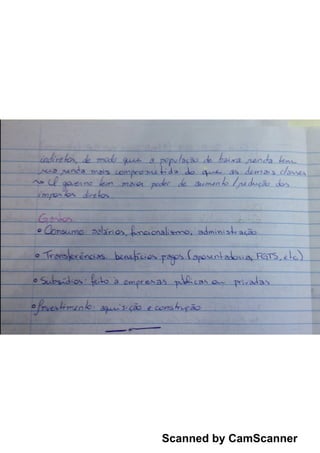 indiretos, de modo que a população de baixa renda tem
sua renda mais comprometida do que as demais classes
O governo tem maior poder de aumento/redução dos
impostos diretos.
Gastos
• Consumo: salários, funcionalismo, administração
• Transferências: benefícios pagos (aposentadoria, FGTS, etc)
• Subsídios: feito à empresas públicas ou privadas
• Investimento: aquisição e construção
Scanned by CamScanner